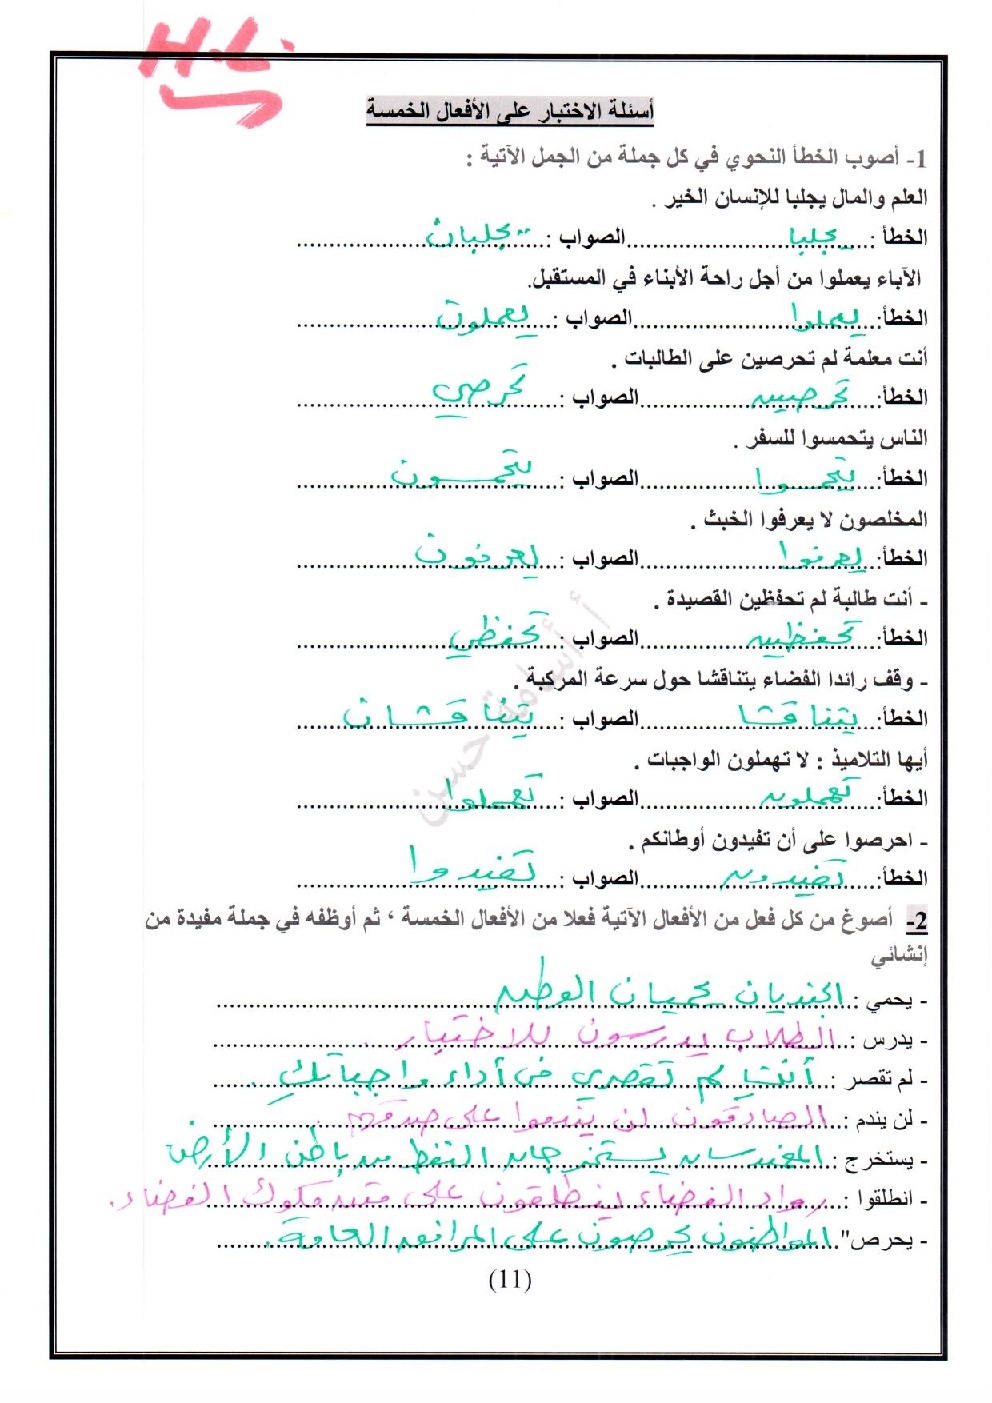 H.L.
أسئلة الاختبار على الأفعال الخمسة
1- أصوب الخطأ النحوي في كل جملة من الجمل الآتية :
العلم والمال يجلبا للإنسان الخير .
الخطأ : يجلبا الصواب : يجلبان
الآباء يعملوا من أجل راحة الأبناء في المستقبل.
الخطأ: يعملوا الصواب : يعملون
أنت معلمة لم تحرصين على الطالبات .
الخطأ: تحرصين الصواب : تحرصي
الناس يتحمسوا للسفر .
الخطأ: يتحمسوا الصواب : يتحمسون
المخلصون لا يعرفوا الخبث .
الخطأ: يعرفوا الصواب : يعرفون
- أنت طالبة لم تحفظين القصيدة .
الخطأ: تحفظين الصواب : تحفظي
- وقف رائدا الفضاء يتناقشا حول سرعة المركبة .
الخطأ: يتناقشا الصواب : يتناقشان
أيها التلاميذ : لا تهملون الواجبات .
الخطأ: تهملون الصواب : تهملوا
- احرصوا على أن تفيدون أوطانكم .
الخطأ: تفيدون الصواب : تفيدوا
أ - أسامة حسن
2- أصوغ من كل فعل من الأفعال الآتية فعلا من الأفعال الخمسة ، ثم أوظفه في جملة مفيدة من
إنشائي
- يحمي : الجنديان يحميان الوطن
- يدرس : الطلاب يدرسون للاختبار .
- لم تقصر : أنتِ لم تقصري في أداء واجباتكِ .
- لن يندم : الصادقون لن يندموا على صدقهم
- يستخرج : المهندسان يستخرجان النفط من باطن الأرض
- انطلقوا : رواد الفضاء ينطلقون على متن مكوك الفضاء .
- يحرص" المواطنون يحرصون على المرافق العامة .
(11)